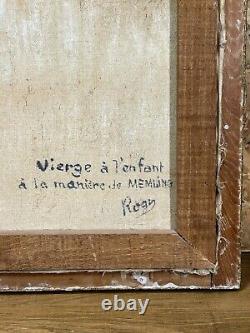 Vierge à l'enfant
à la manière de MEMLING
ebay